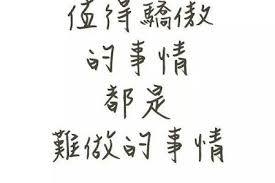 值得驕傲
的事情
都是
難做的事情